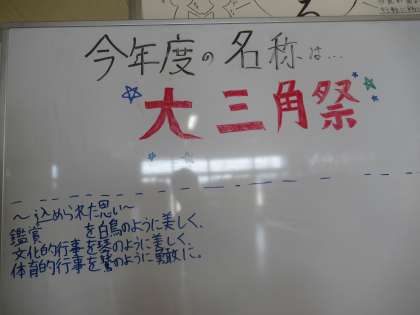 今年度の名称は…
大三角祭
～込められた思い～
鑑賞　　を白鳥のように美しく、
文化的行事を琴のように美しく、
体育的行事を鷲のように勇敢に。